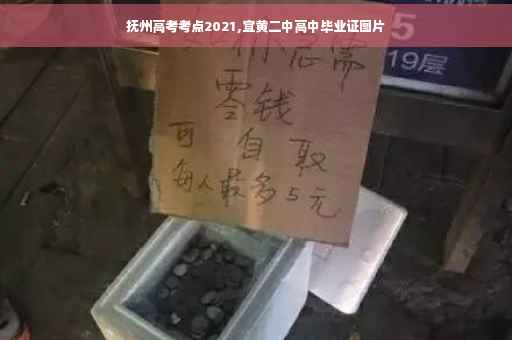 抚州高考考点2021,宜黄二中高中毕业证图片
如你急需
零钱
可自取
每人最多5元
5
19层